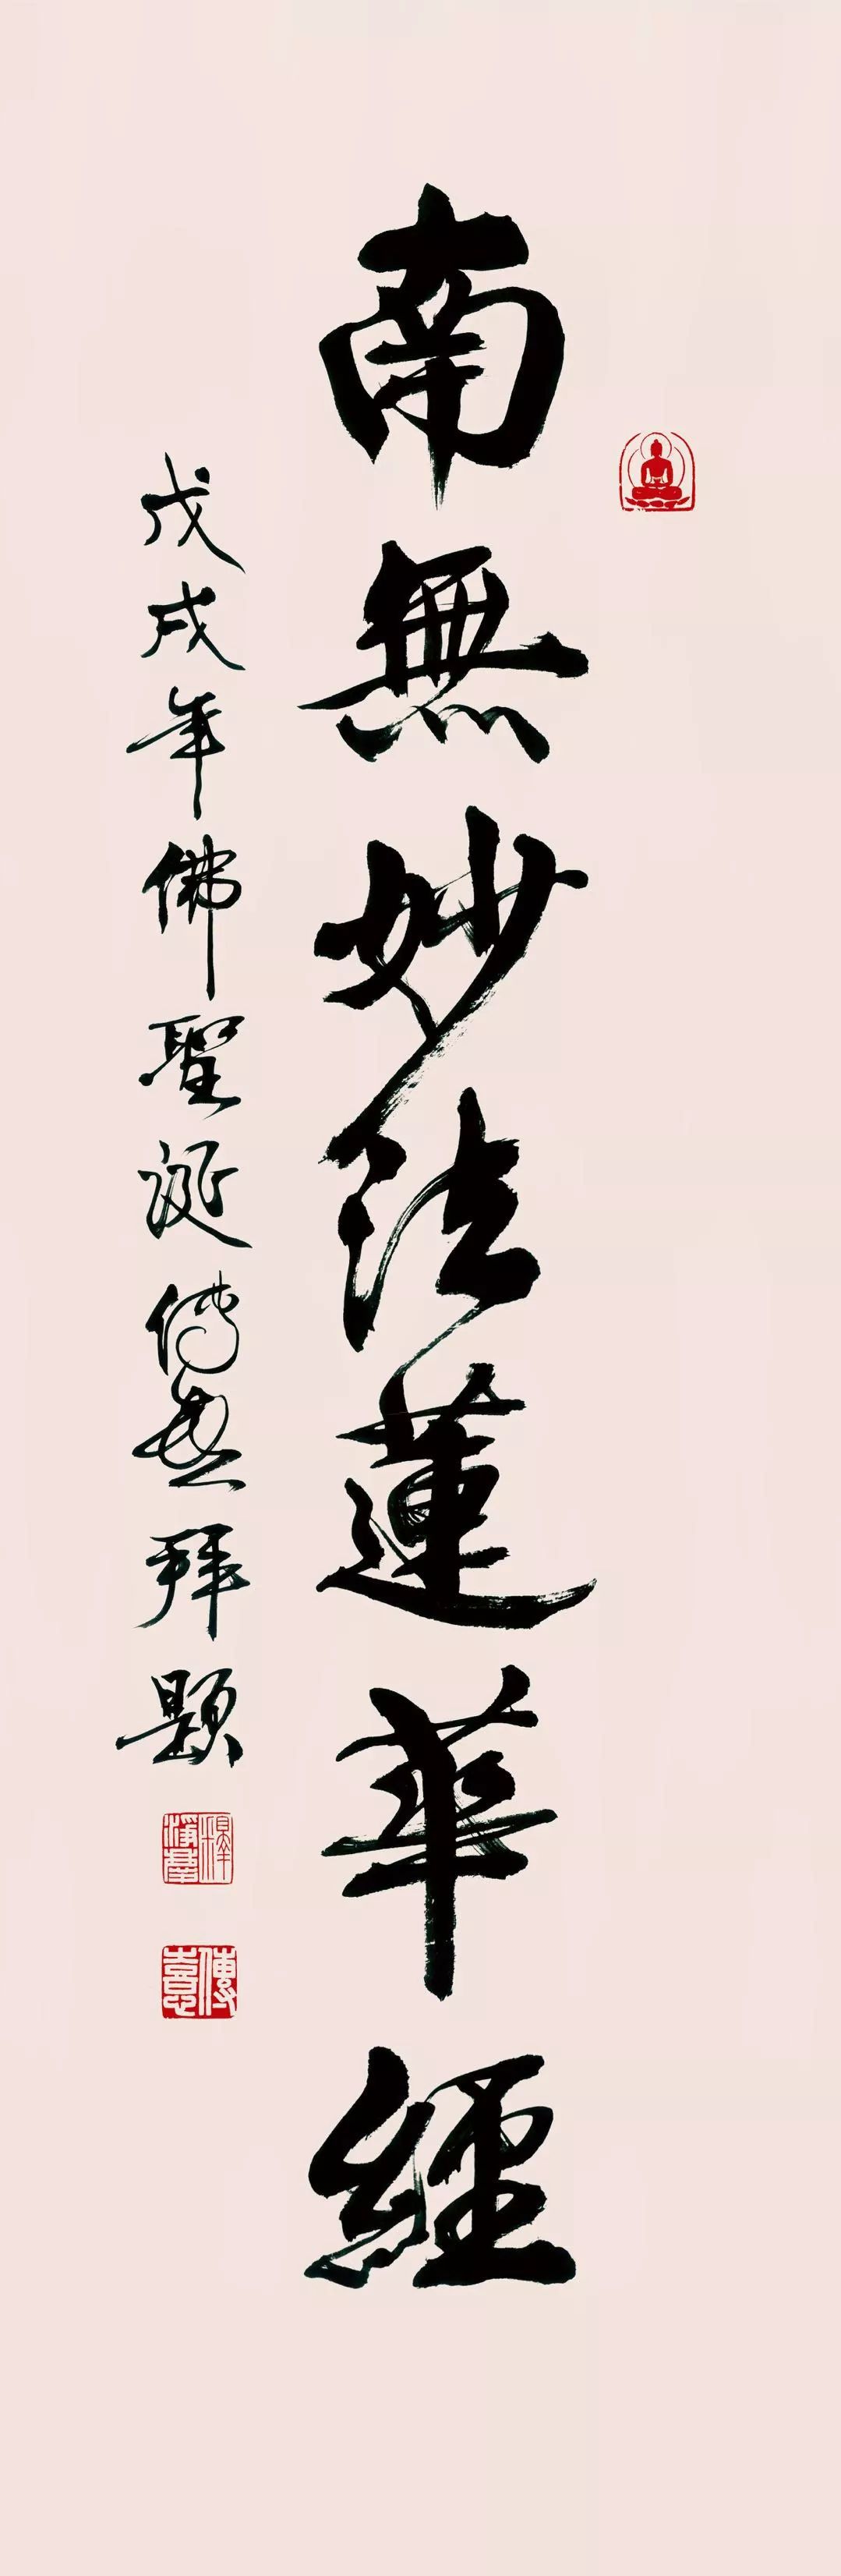 南無妙法蓮華經
戊戌年佛聖誕傳喜拜題
傳喜